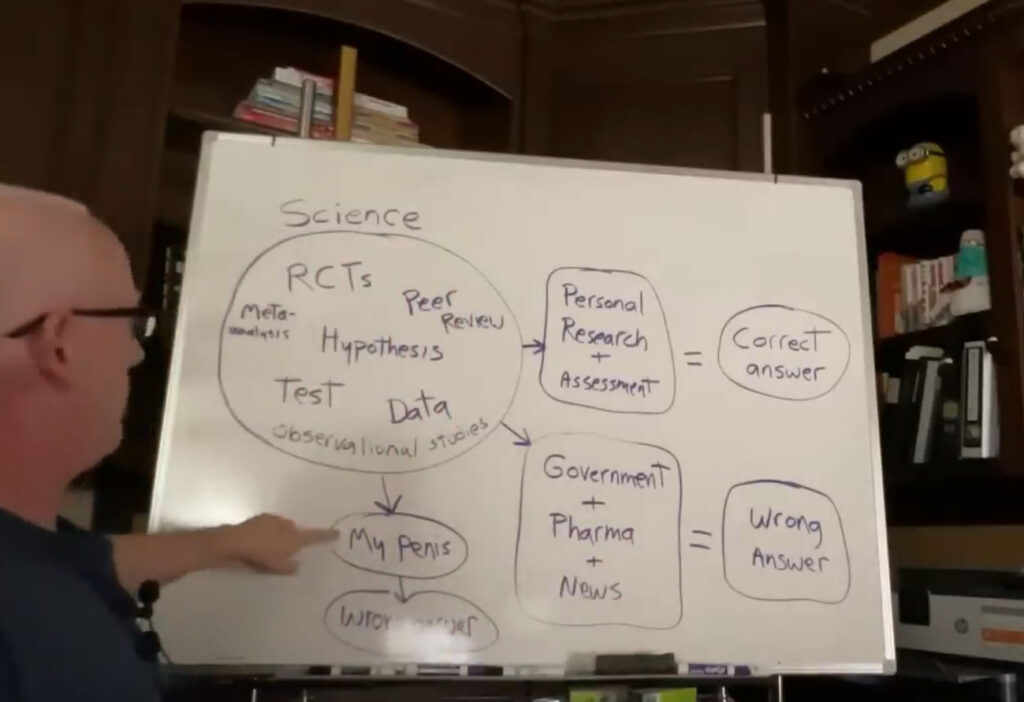 Science
RCTs
Meta-
analysis
Peer
Review
Hypothesis
Test
Data
Observational studies
Personal
Research
+
Assessment
=
Correct
answer
Government
+
Pharma
+
News
=
Wrong
Answer
My Penis
hp